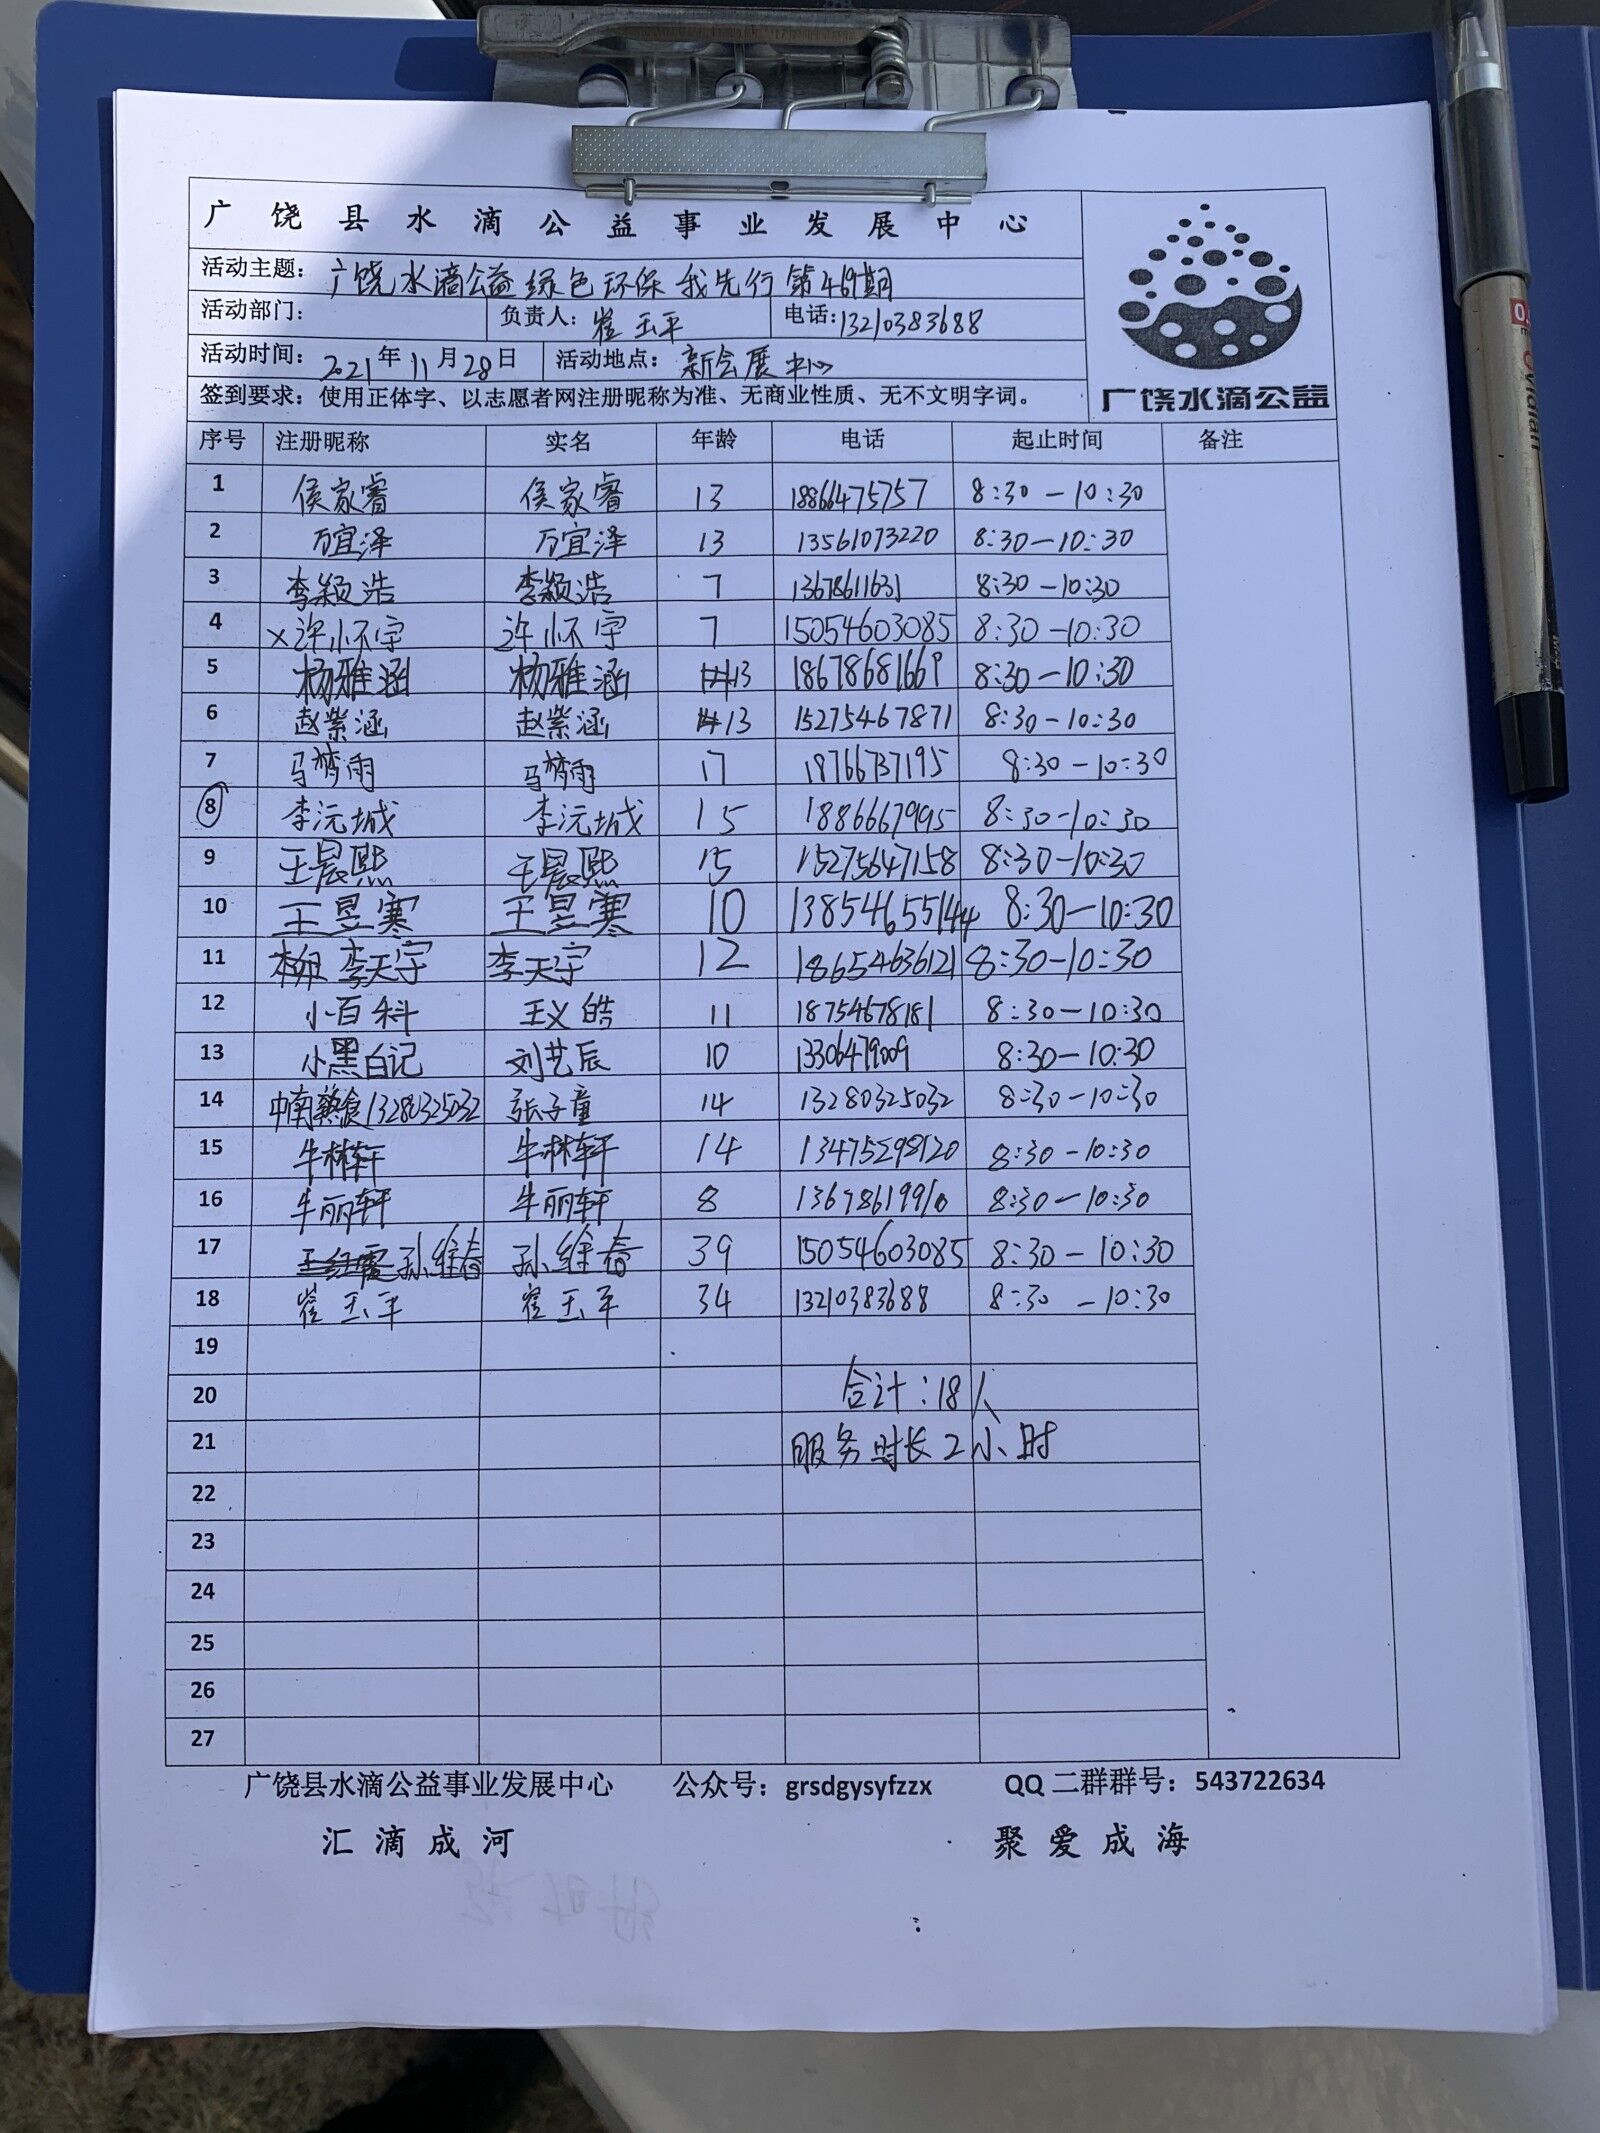 广饶县水滴公益事业发展中心
活动主题：广饶水滴公益绿色环保我先行第469期
活动部门： 负责人：崔玉平 电话：13210383688
活动时间：2021年11月28日 活动地点：新会展中心
签到要求：使用正体字、以志愿者网注册昵称为准、无商业性质、无不文明字词。
广饶水滴公益
序号 注册昵称 实名 年龄 电话 起止时间 备注
1 侯家睿 侯家睿 13 18866475757 8:30-10:30
2 万宜泽 万宜泽 13 13561073220 8:30-10:30
3 李颖浩 李颖浩 7 13678611631 8:30-10:30
4 ×许怀宇 许怀宇 7 15054603085 8:30-10:30
5 杨雅涵 杨雅涵 13 18678681669 8:30-10:30
6 赵紫涵 赵紫涵 13 15275467871 8:30-10:30
7 马梦雨 马梦雨 17 18766737195 8:30-10:30
8 李沅城 李沅城 15 18866679995 8:30-10:30
9 王晨熙 王晨熙 15 15275647158 8:30-10:30
10 王昱寒 王昱寒 10 13854655144 8:30-10:30
11 李天宇 李天宇 12 18654636121 8:30-10:30
12 小百科 王义皓 11 18754678181 8:30-10:30
13 小黑白记 刘艺辰 10 13306479009 8:30-10:30
14 中南 13280325032 张子童 14 13280325032 8:30-10:30
15 牛林轩 牛林轩 14 13475298120 8:30-10:30
16 牛丽轩 牛丽轩 8 13678619910 8:30-10:30
17 孙维春 孙维春 39 15054603085 8:30-10:30
18 崔玉平 崔玉平 34 13210383688 8:30-10:30
19
20 合计：18人
21 服务时长2小时
22
23
24
25
26
27
广饶县水滴公益事业发展中心 公众号：grsdgysyfzzx QQ二群群号：543722634
汇滴成河 聚爱成海